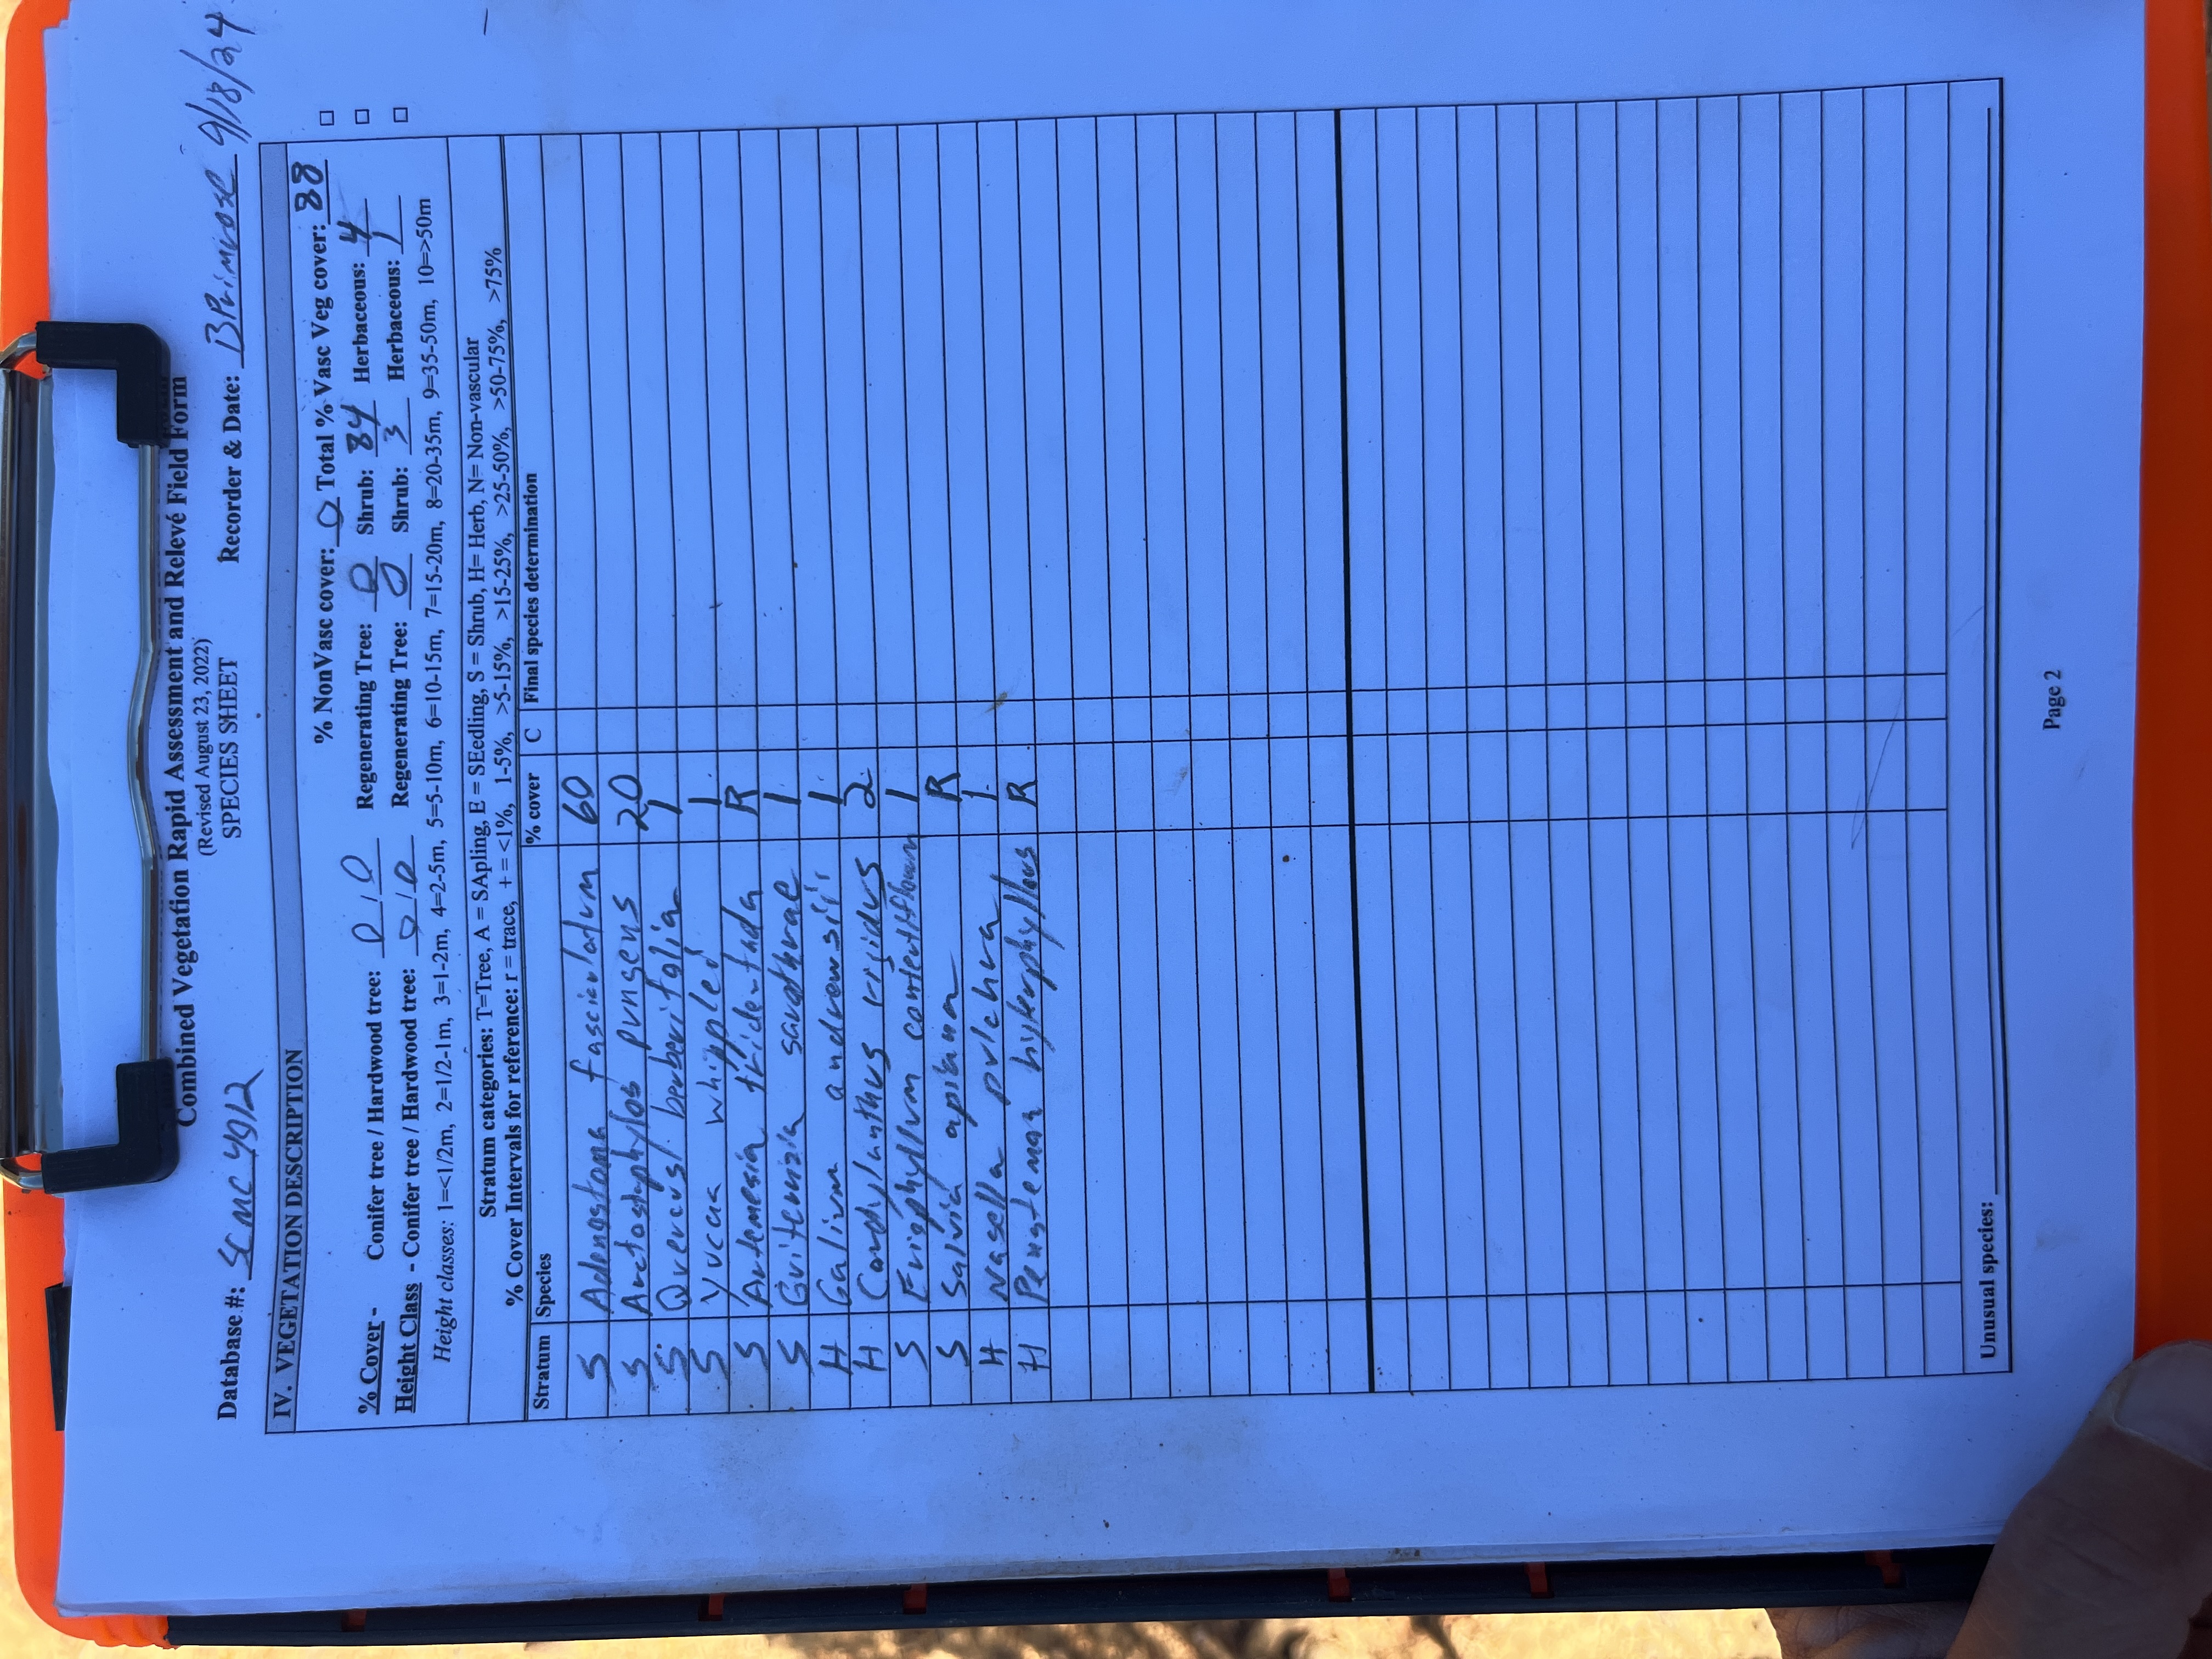 Combined Vegetation Rapid Assessment and Relevé Field Form
(Revised August 23, 2022)
SPECIES SHEET
Database #: SCMC 4912 Recorder & Date: BPrimrose 9/18/24
IV. VEGETATION DESCRIPTION
% NonVasc cover: 0 Total % Vasc Veg cover: 88 □
% Cover - Conifer tree / Hardwood tree: 0 / 0 Regenerating Tree: 0 Shrub: 84 Herbaceous: 4 □
Height Class - Conifer tree / Hardwood tree: 0 / 0 Regenerating Tree: 0 Shrub: 3 Herbaceous: 1 □
Height classes: 1=<1/2m, 2=1/2-1m, 3=1-2m, 4=2-5m, 5=5-10m, 6=10-15m, 7=15-20m, 8=20-35m, 9=35-50m, 10=>50m
Stratum categories: T=Tree, A = SApling, E = SEedling, S = Shrub, H= Herb, N= Non-vascular
% Cover Intervals for reference: r = trace, + = <1%, 1-5%, >5-15%, >15-25%, >25-50%, >50-75%, >75%
Stratum Species % cover C Final species determination
S Adenostoma fasciculatum 60
S Arctostaphylos pungens 20
S Quercus berberifolia 1
S Yucca whipplei 1
S Artemesia tridentada R
S Gutierrizia sarothrae 1
H Galium andrewsii 1
H Cordylanthus rigidus 2
S Eriophyllum confertiflorum 1
S Salvia apiana R
H Nasella pulchra 1
H Penstemon heterophyllus R
Unusual species:
Page 2